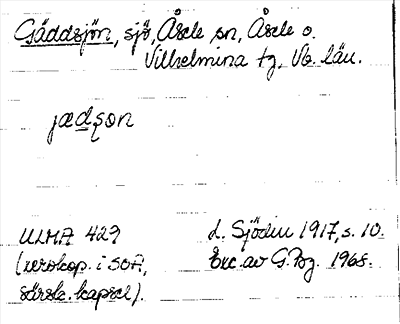 Gäddsjön, sjö, Åsele sn, Åsele o.
Vilhelmina tg, Vb. län.
jædʂon
ULMA 429
(xerokop. i SOFA,
särsk. kapsel).
L. Sjödin 1917, s. 10.
Exc. av G. Pzg. 1968.